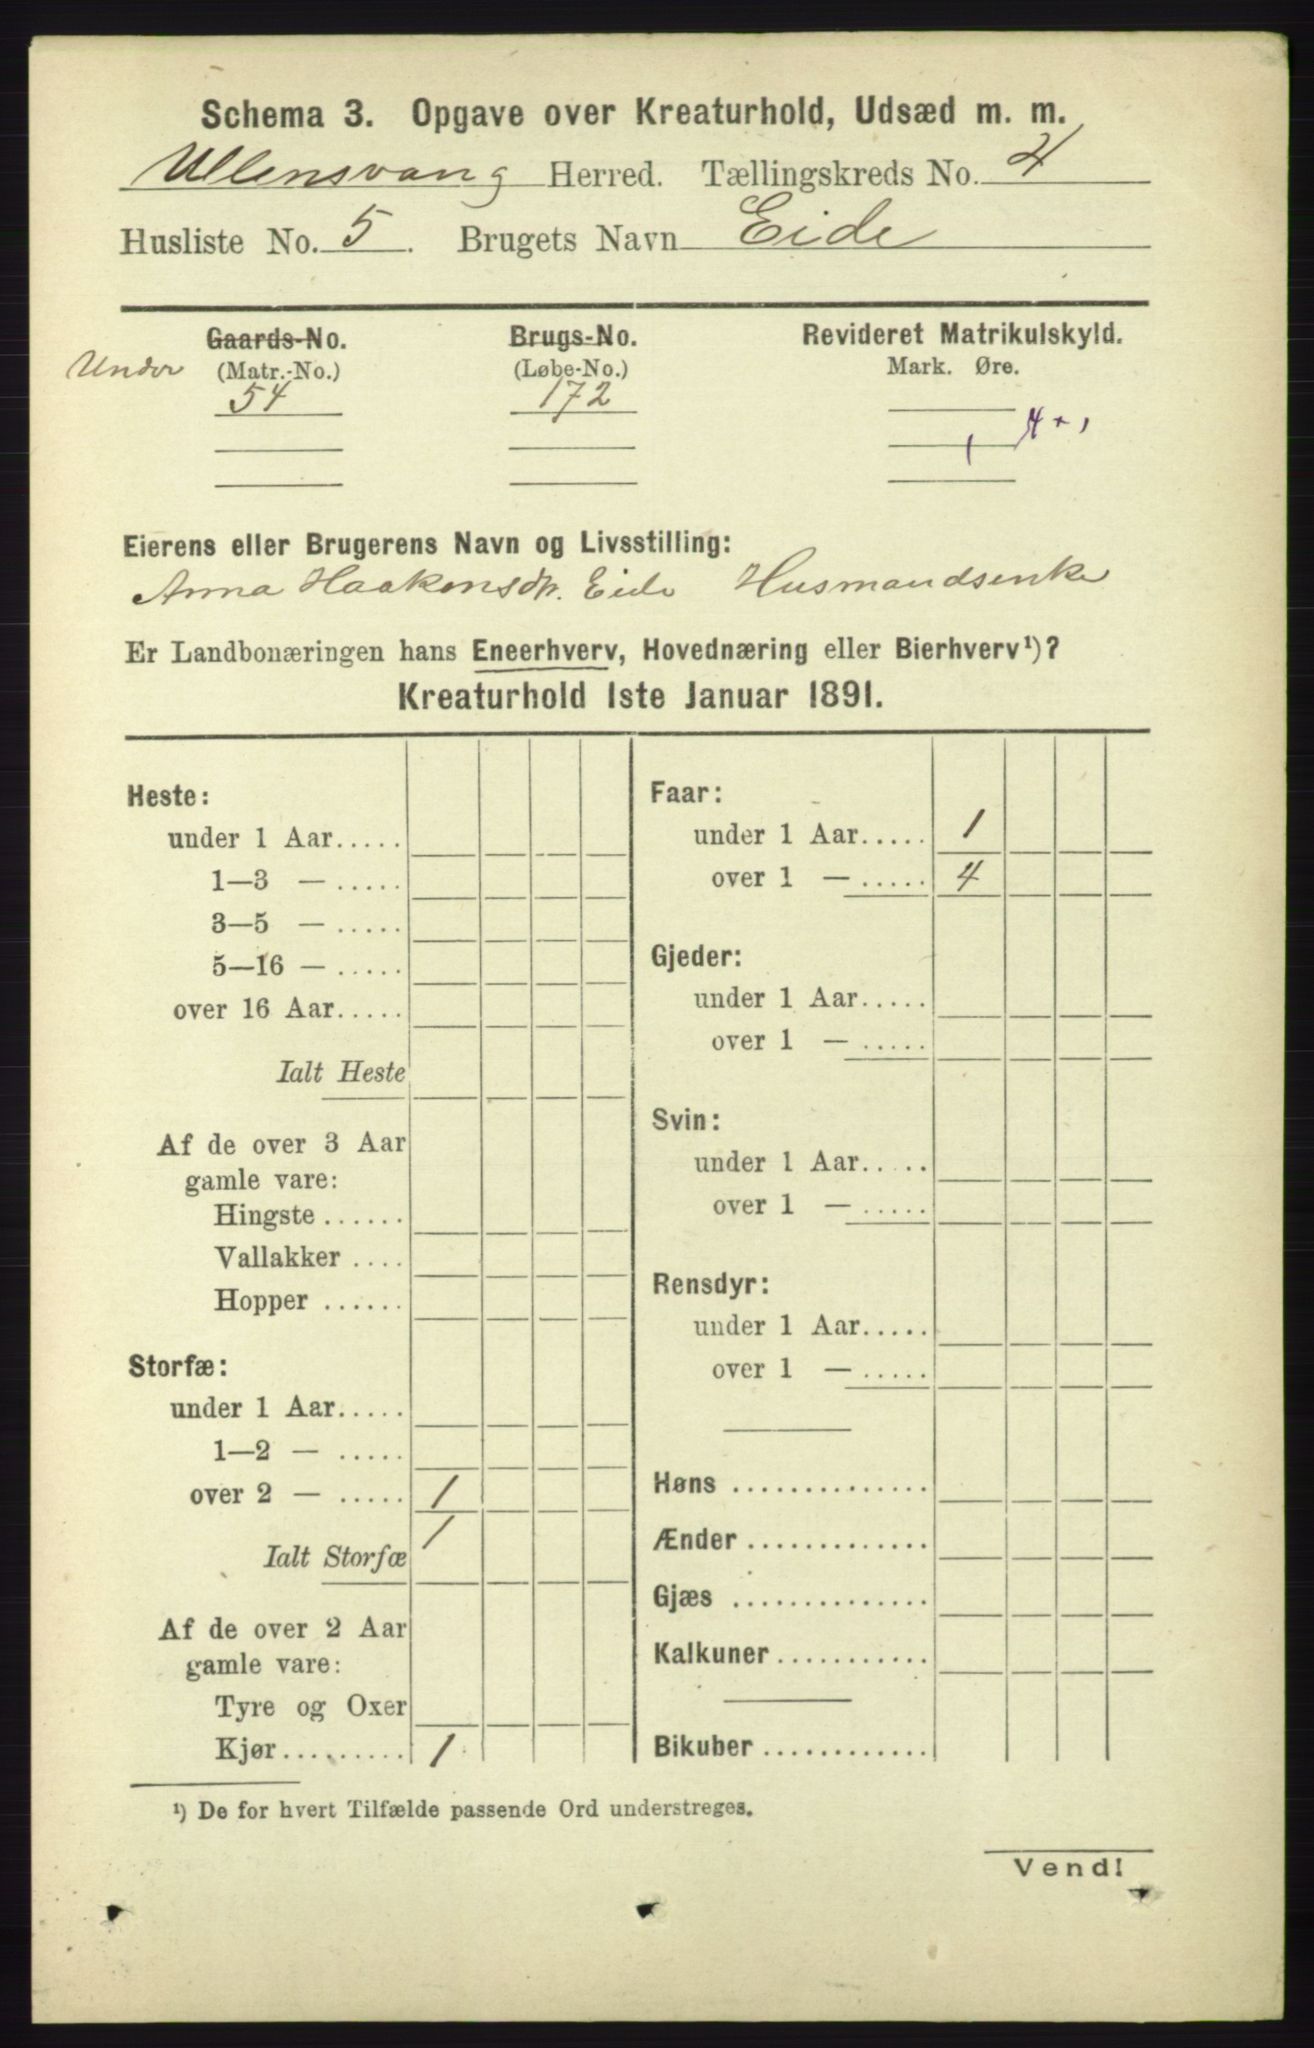 Schema 3. Opgave over Kreaturhold, Udsæd m. m.
Ullensvang Herred. Tællingskreds No. 4
Husliste No. 5. Brugets Navn Eide
Gaards-No. Brugs-No. Revideret Matrikulskyld.
Under (Matr.-No.) (Løbe-No.) Mark. Øre.
54 172
4+1
Eierens eller Brugerens Navn og Livsstilling:
Anna Haakonsdtr. Eide Husmandsenke
Er Landbonæringen hans Eneerhverv, Hovednæring eller Bierhverv¹)?
Kreaturhold 1ste Januar 1891.
Heste:
under 1 Aar.....
1—3 — .....
3—5 — .....
5—16 — .....
over 16 Aar.....
Ialt Heste
Af de over 3 Aar
gamle vare:
Hingste ......
Vallakker ....
Hopper ......
Storfæ:
under 1 Aar.....
1—2 — .....
over 2 — ..... 1
Ialt Storfæ 1
Af de over 2 Aar
gamle vare:
Tyre og Oxer
Kjør......... 1
Faar:
under 1 Aar..... 1
over 1 — ..... 4
Gjeder:
under 1 Aar.....
over 1 — .....
Svin:
under 1 Aar.....
over 1 — .....
Rensdyr:
under 1 Aar.....
over 1 — .....
Høns ..............
Ænder .............
Gjæs ..............
Kalkuner ...........
Bikuber ............
¹) De for hvert Tilfælde passende Ord understreges.
Vend!